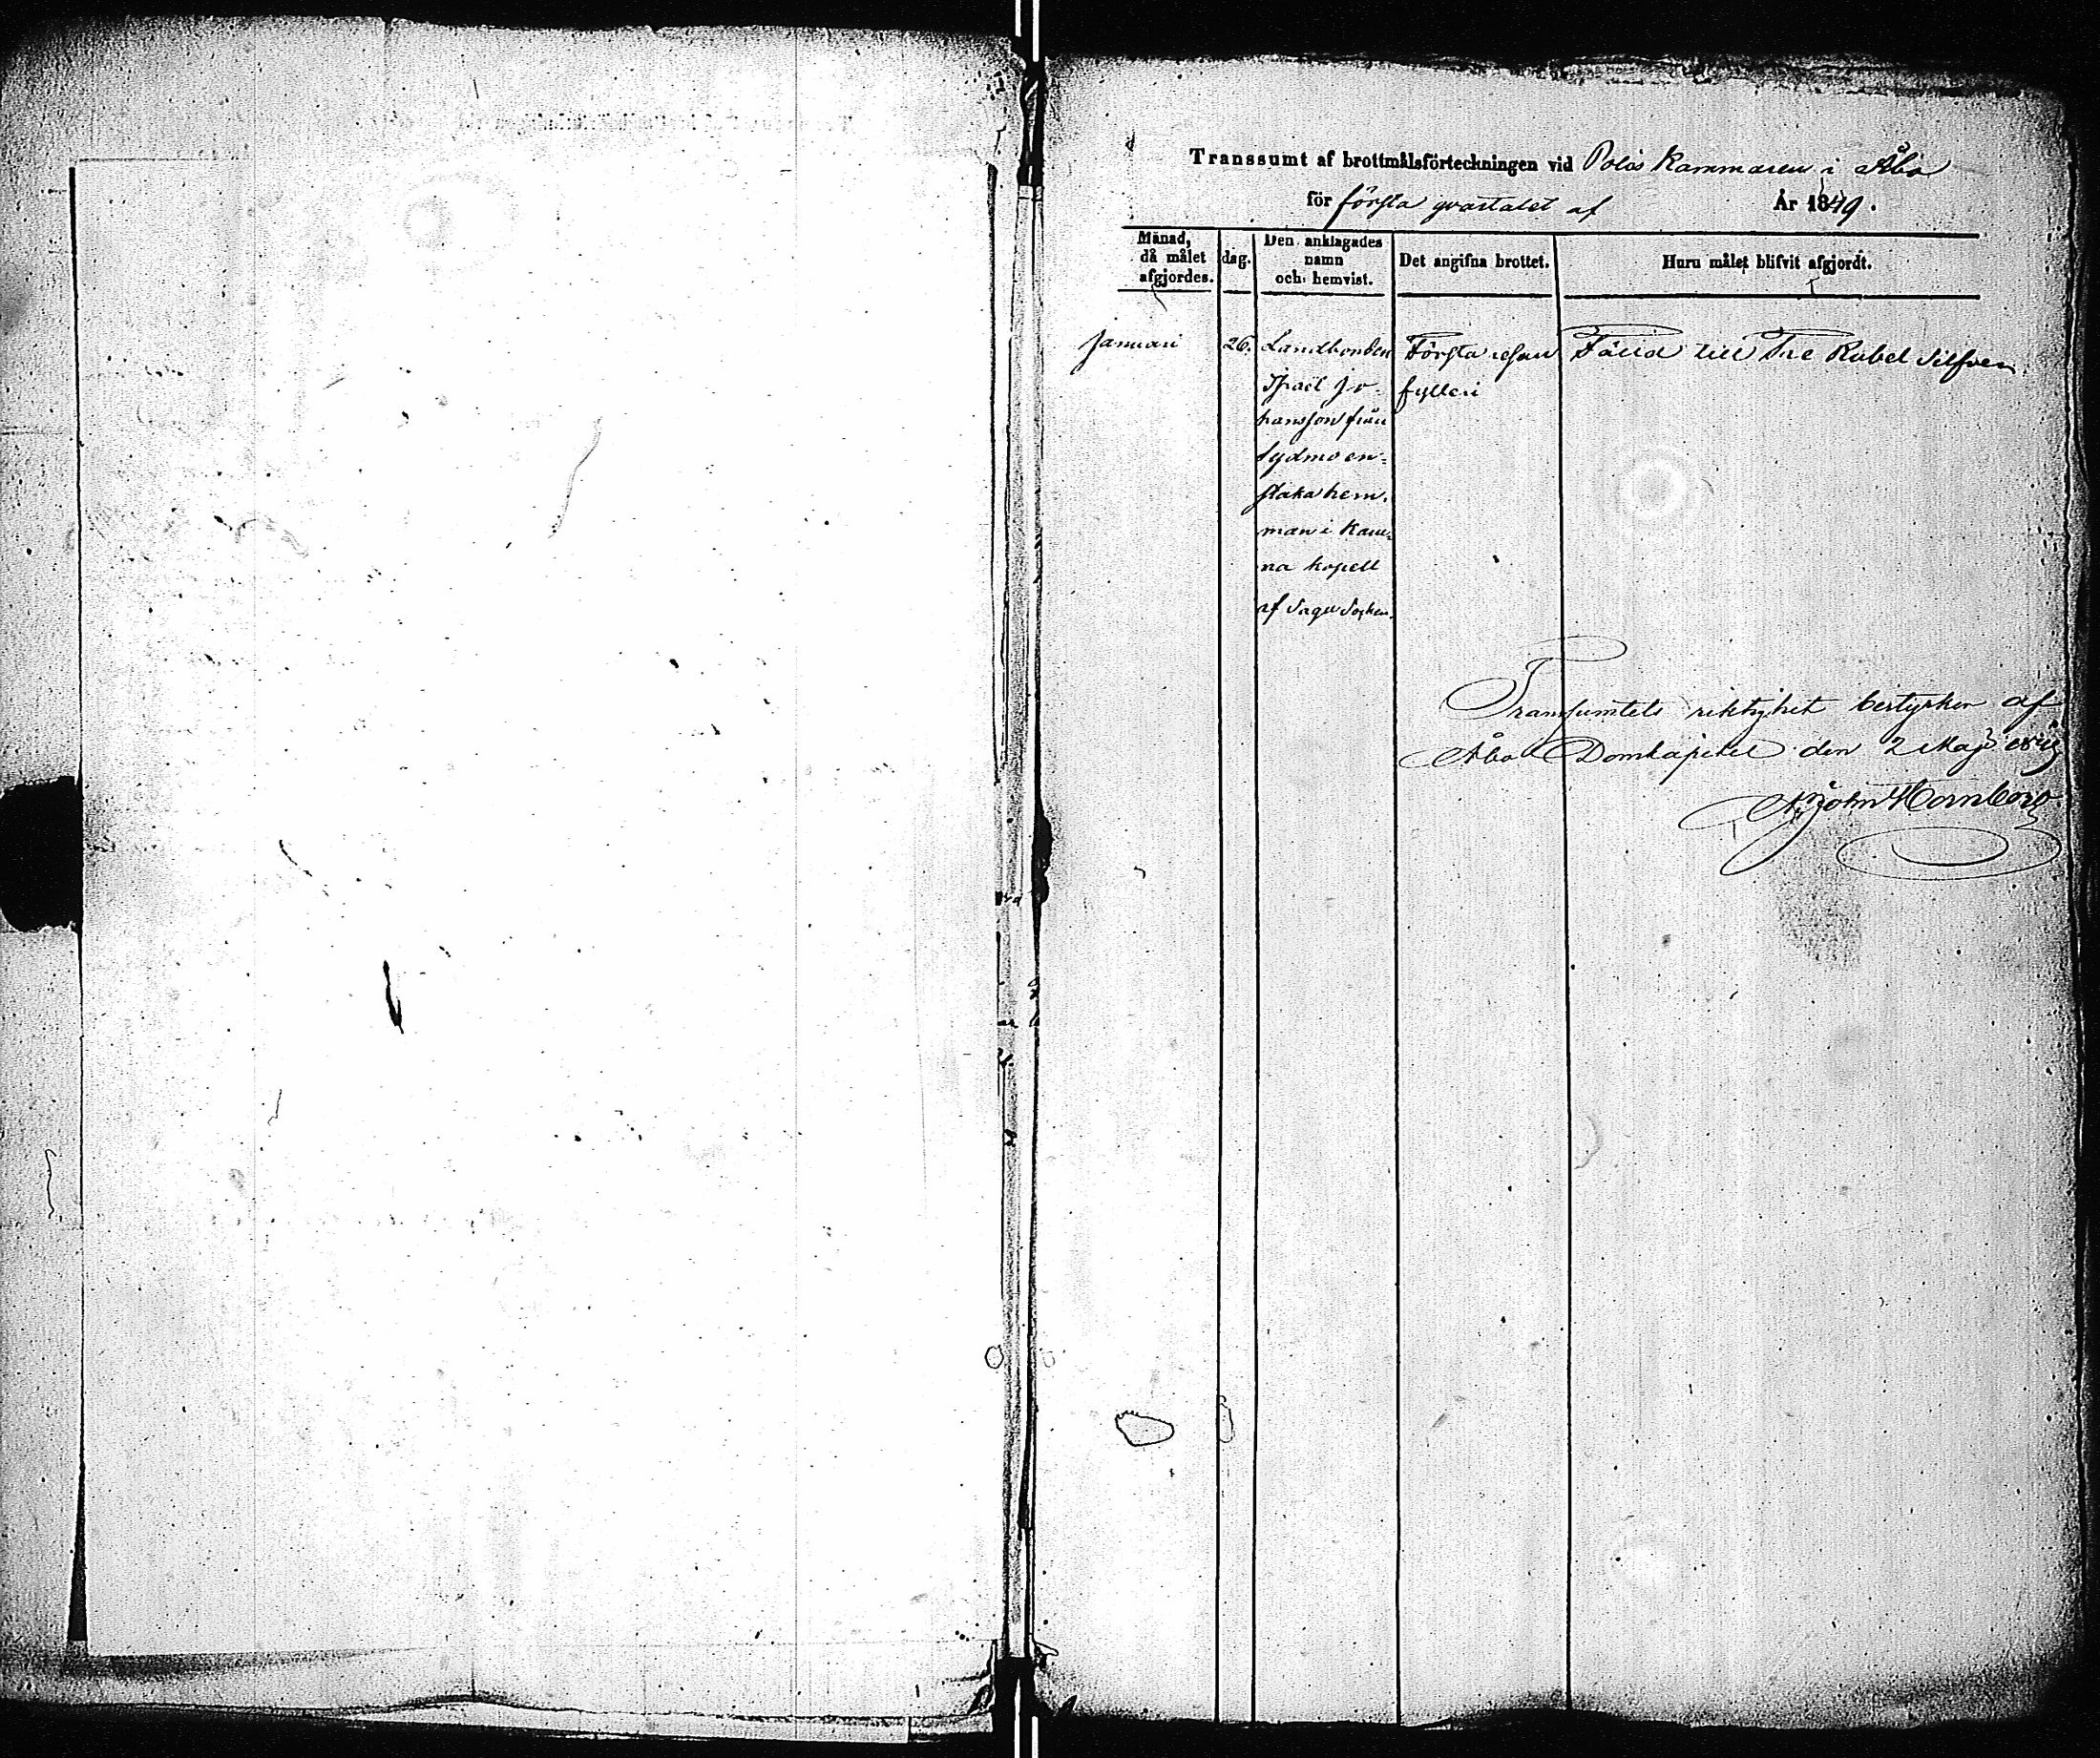 Transsumt af brottmålsförteckningen vid Polis Kammaren i Åbo
för första qvartalet af År 1849.
Månad, då målet afgjordes.
dag.
Den anklagades namn och hemvist.
Det angifna brottet.
Huru målet blifvit afgjordt.
Januari 26. Landbonden Första resan Fälld till Tre Rubel Silfver.
Israël Jo- fylleri
hansson från
Sydmo en-
staka hem-
man i Karu-
na kapell
af Sagu Socken.
Transumtets riktighet bestyrker af
Åbo Domkapitel den 2 Maji 1849
John Hornborg